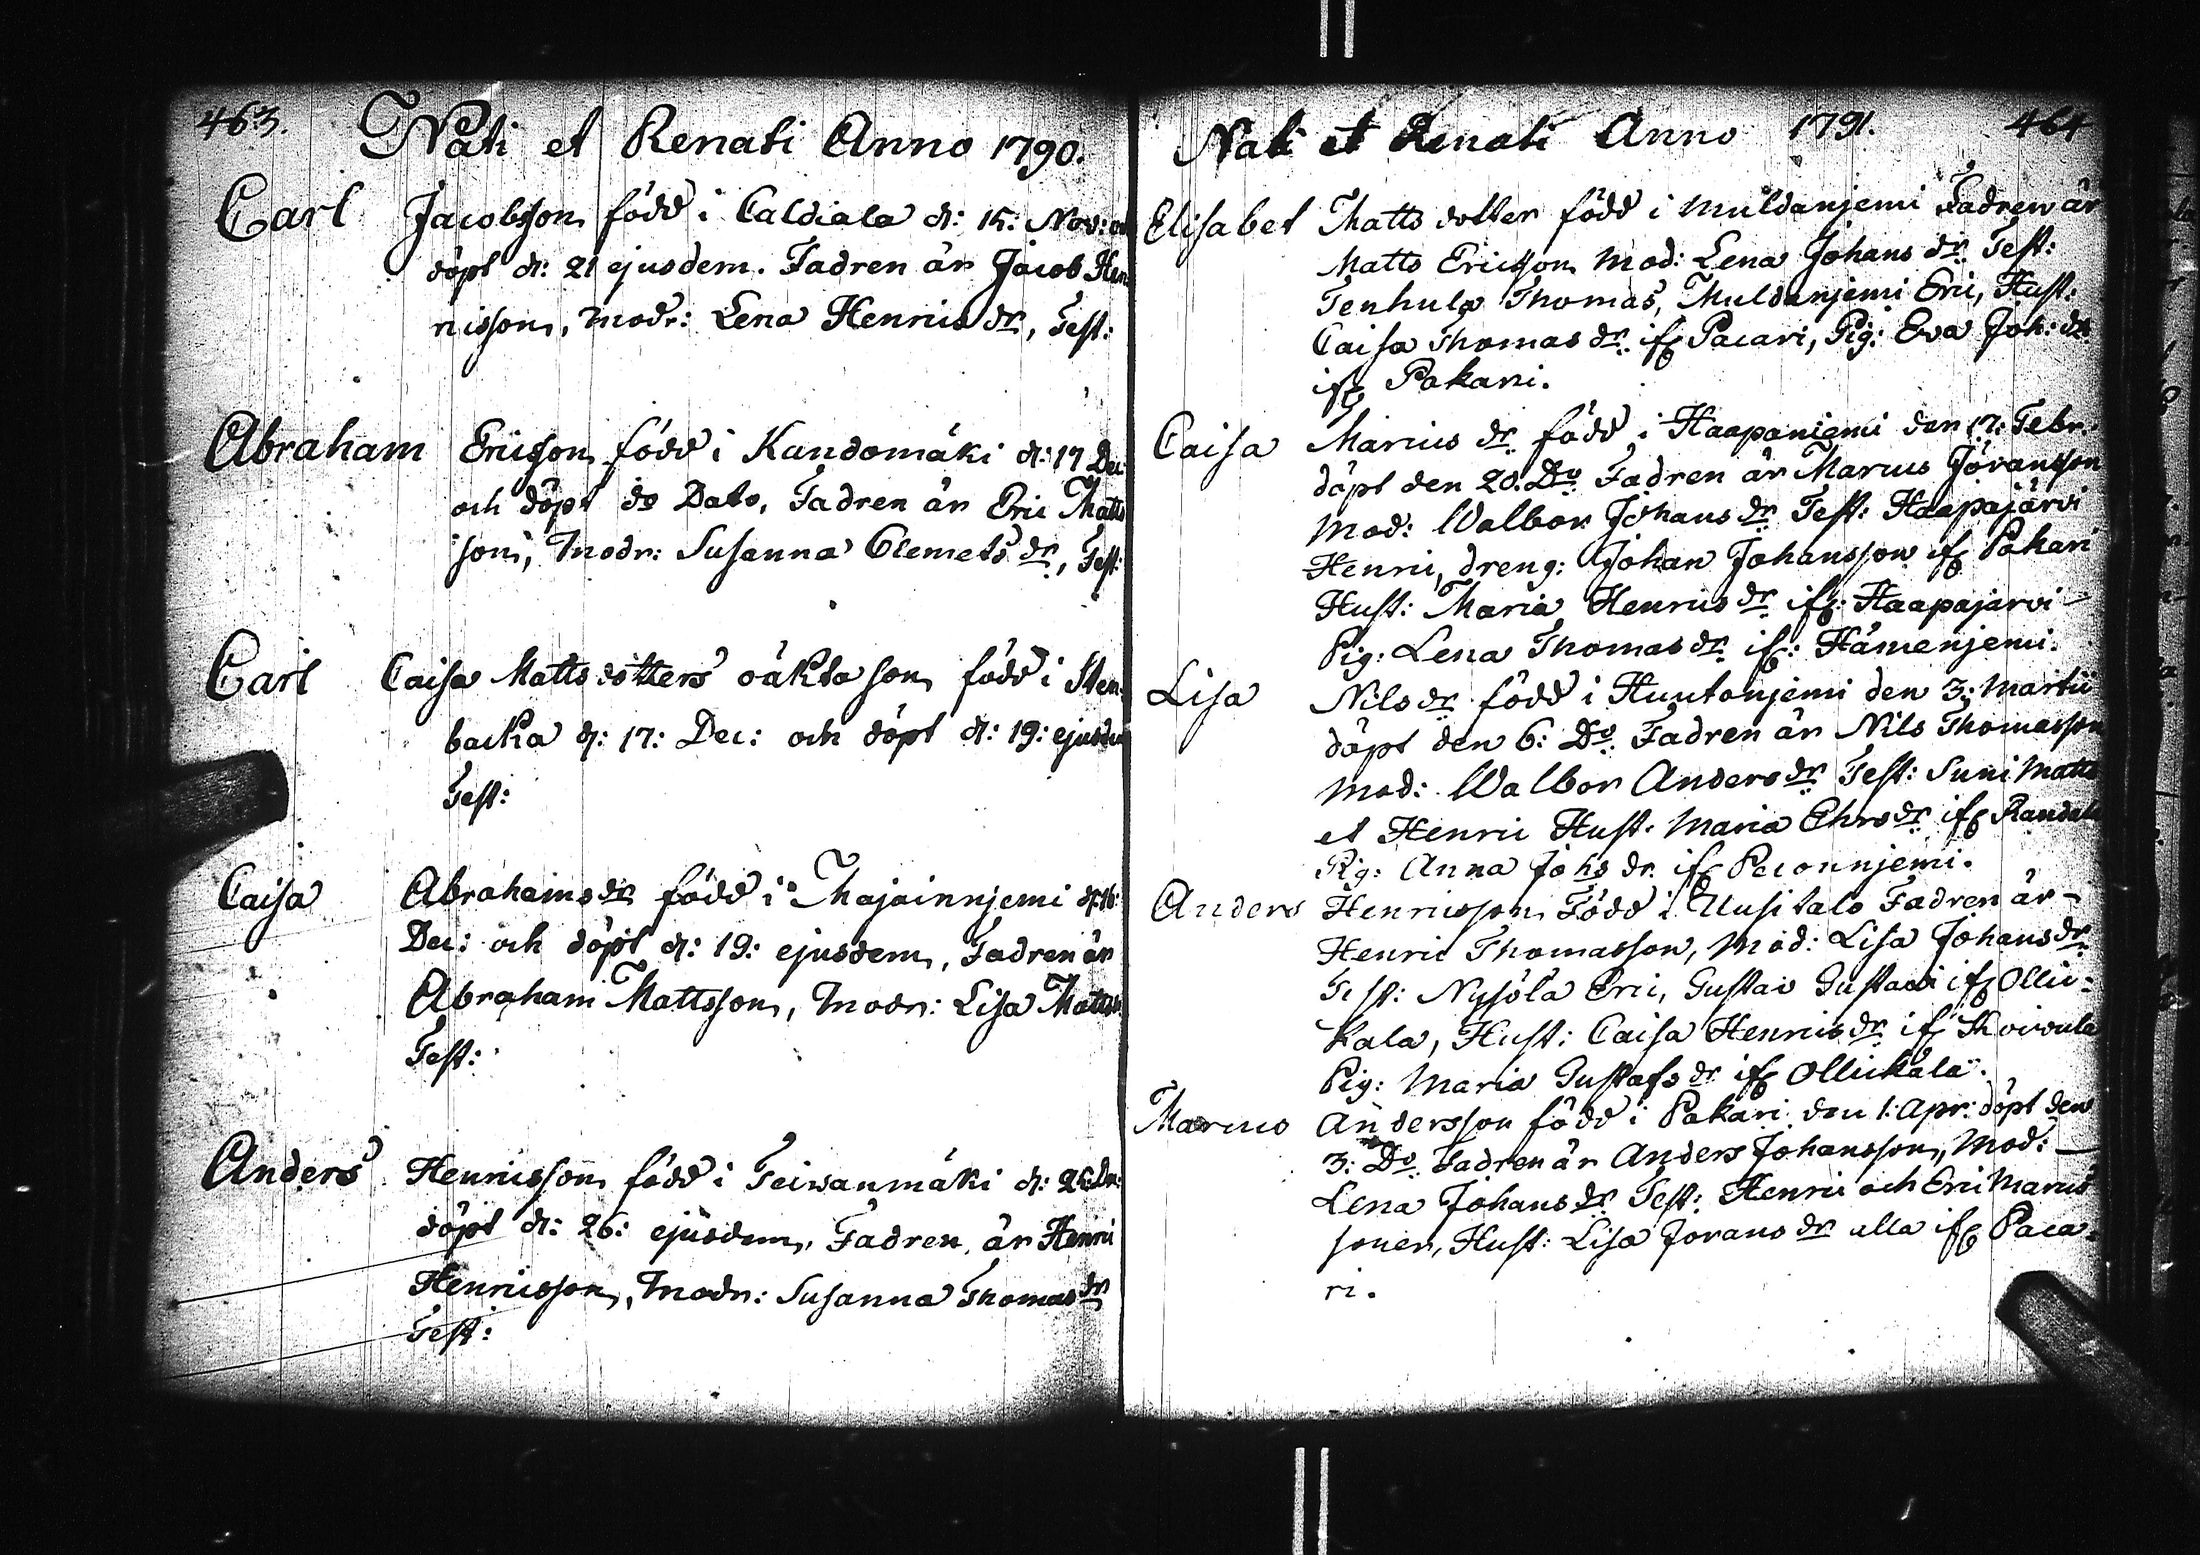 463.
Nati et Renati Anno 1790.
Carl Jacobsson född i Caldiala d: 15: Nov: och
döpt d: 21 ejusdem. Fadren är Jacob Hen
ricsson, Modr: Lena Henrics dr, Test:
Abraham Ericsson född i Kandomäki d: 17 Dec
och döpt do Dato, Fadren är Eric Matts
son, Modr: Susanna Clemets dr, Test:
Carl Caisa Matts dotters oäkta son född i Sten
backa d: 17: Dec: och döpt d: 19: ejusdem
Test:
Caisa Abrahams dr född i Majainnjemi d: 16:
Dec: och döpt d: 19: ejusdem, Fadren är
Abraham Mattsson, Modr: Lisa Matts
Test:
Anders Henricsson född i Teiwanmäki d: 25: Dec:
döpt d: 26: ejusdem, Fadren är Henric
Henricsson, Modr: Susanna Thomas dr
Test:
Nati et Renati Anno 1791. 464
Elisabet Matts dotter född i Muldanjemi Fadren är
Matts Ericsson Mod: Lena Johans dr. Test:
Tenhula Thomas, Muldanjemi Eric, Hust:
Caisa Thomas dr. if Pacari, Pig: Eva Joh: dr
if Pakari.
Caisa Marcus dr. född i Haapaniemi den 17: Febr.
döpt den 20. Do. Fadren är Marcus Jöransson
Mod: Walbor Johans dr Test: Haapajärvi
Henric, dreng: Johan Johansson if Pakari
Hust: Maria Henrics dr if: Haapajärvi
Pig: Lena Thomas dr. if: Hämenjemi.
Lisa Nils dr. född i Huutonjemi den 3: Martii
döpt den 6: Do. Fadren är Nils Thomasson
Mod: Walbor Anders dr Test: Suni Matts
et Henric Hust. Maria Ehrs dr. if Randala
Pig: Anna Johs dr. if Peconnjemi.
Anders Henricsson Född i Uusitalo Fadren är
Henric Thomasson, Mod: Lisa Johans dr.
Test: Nysölä Eric, Gustav Gustavi if Ollic-
kala, Hust: Caisa Henrics dr. if Skoivula
Pig: Maria Gustafs dr if Ollickala.
Marcus Andersson född i Pakari den 1: Apr: döpt den
3: Do. Fadren är Anders Johansson, Mod:
Lena Johans dr Test: Henric och Eric Marcus
soner, Hust: Lisa Jorans dr alla if Paca-
ri.